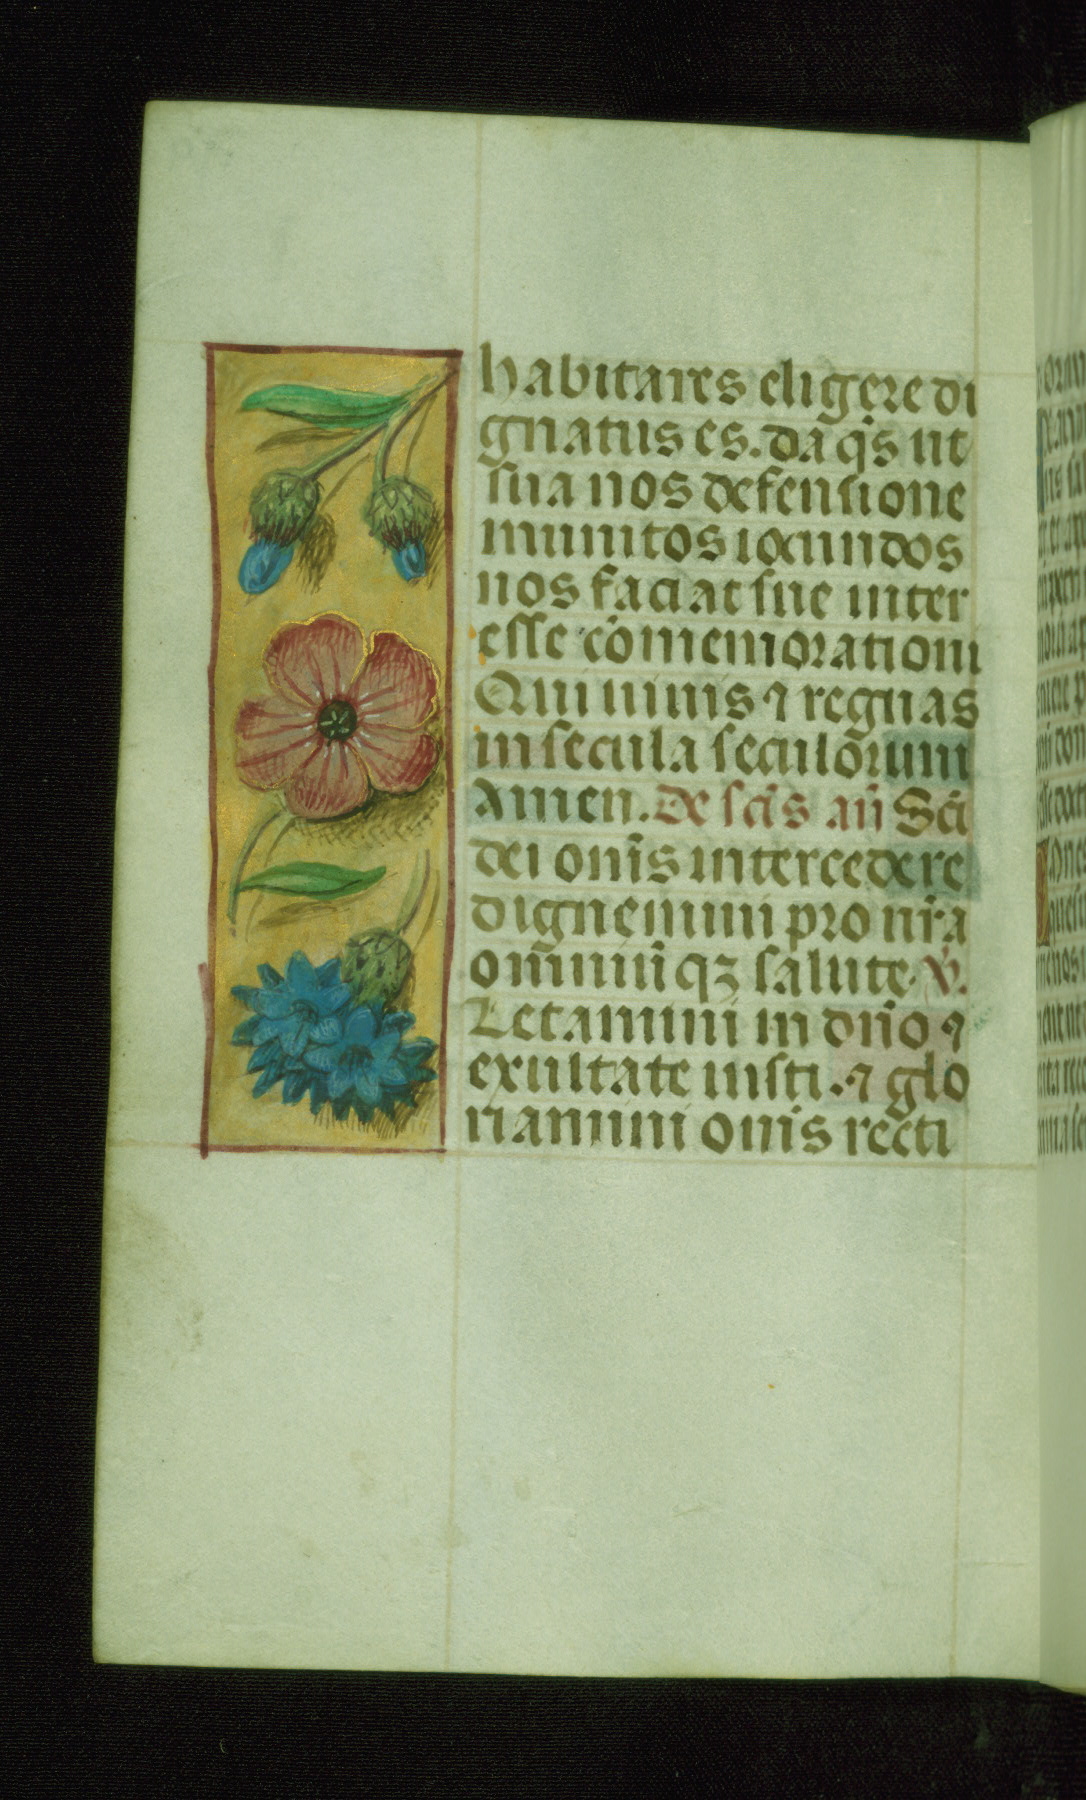 habitares eligere di
gnatus es. da q̄s ut
sua nos defensione
munitos iocundos
nos faciat sue inter
esse cōmemorationi
Qui uiuis ⁊ regnas
in secula seculorum
Amen. De sc̄is an̄ Sc̄i
dei om̄s intercedere
dignemini pro nr̄a
omniū qꝫ salute. ℣.
Letamini in dn̄o ⁊
exultate iusti. ⁊ glo
riamini om̄s recti